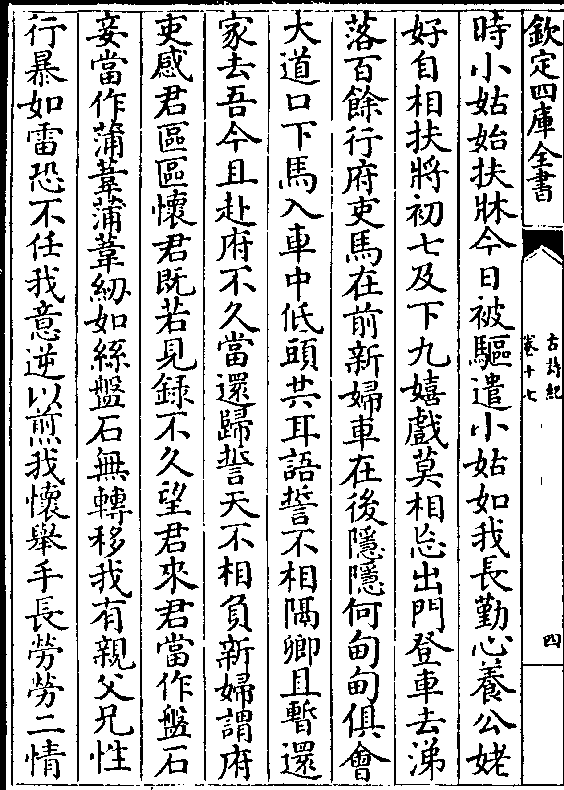 欽定四庫全書
古詩紀
卷十七
四
時小姑始扶牀今日被驅遣小姑如我長勤心養公姥
好自相扶將初七及下九嬉戲莫相忘出門登車去涕
落百餘行府吏馬在前新婦車在後隱隱何甸甸俱會
大道口下馬入車中低頭共耳語誓不相隔卿且暫還
家去吾今且赴府不久當還歸誓天不相負新婦謂府
吏感君區區懷君既若見録不久望君來君當作盤石
妾當作蒲葦蒲葦紉如絲盤石無轉移我有親父兄性
行暴如雷恐不任我意逆以煎我懷舉手長勞勞二情